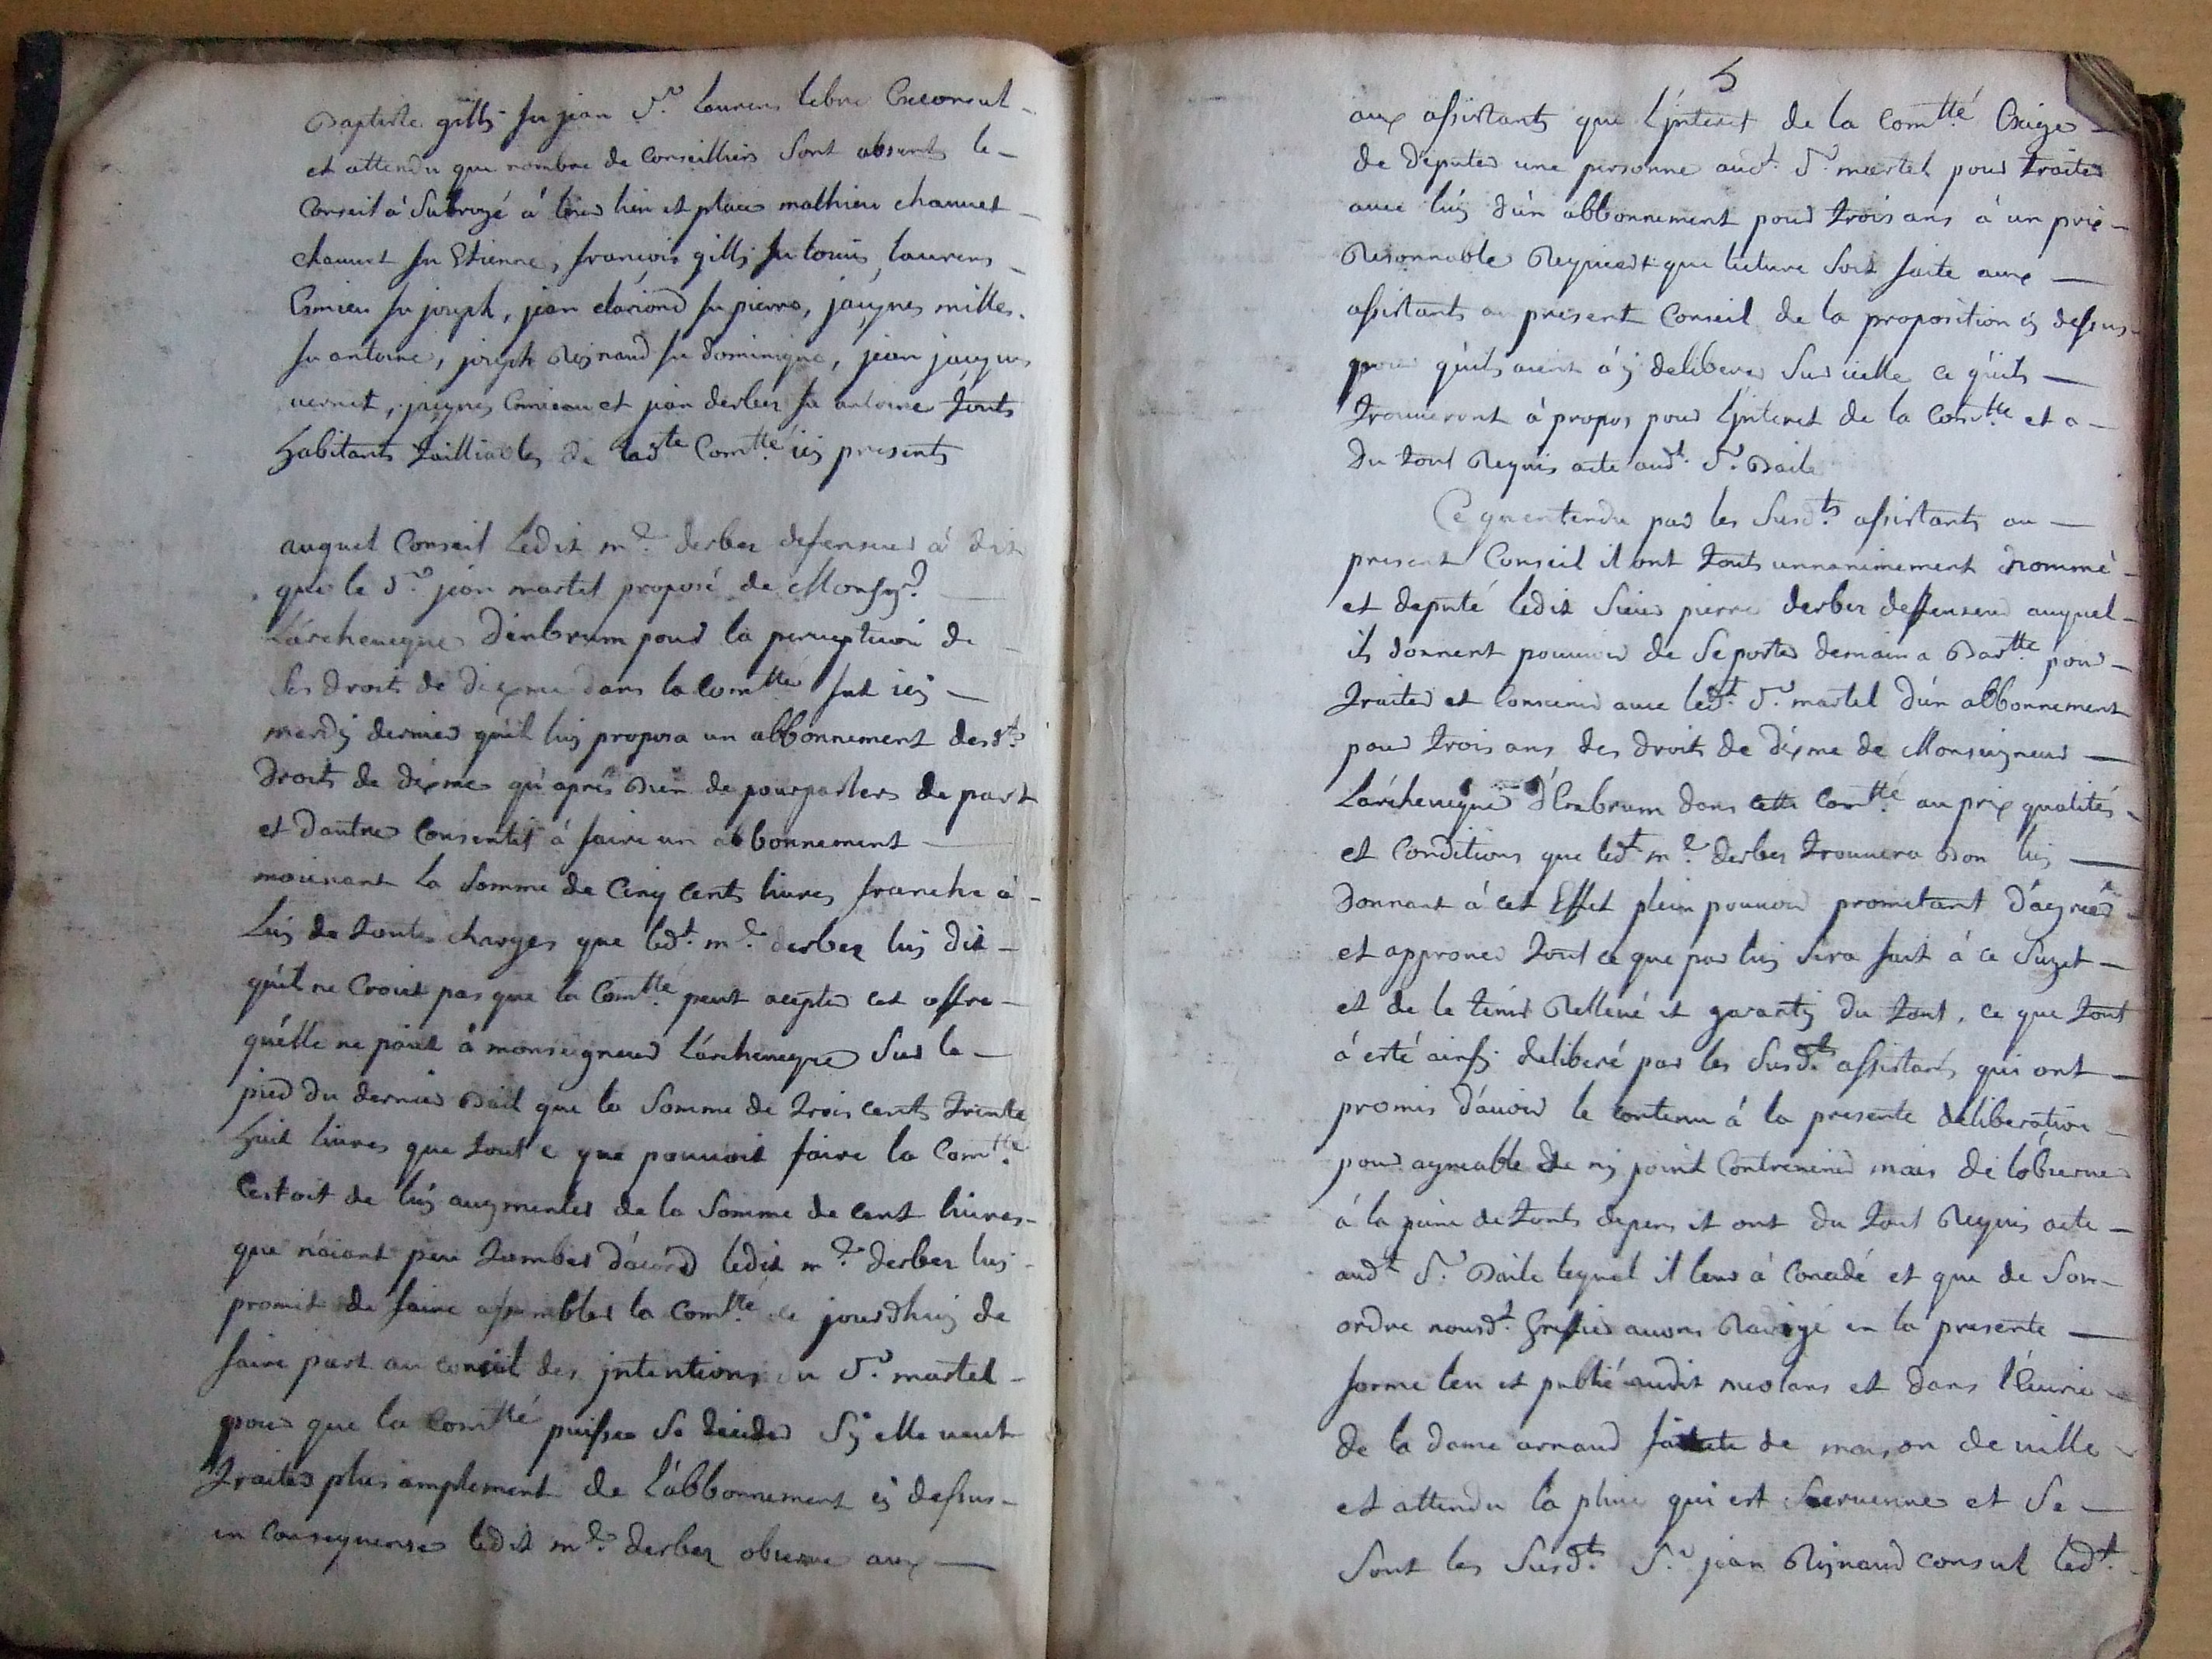 Baptiste gilly fu jean Sr. laurens lebre Exconsul
et attendu que nombre de Conseilliers Sont absents le
Conseil à Subrogé à leur lieu et place mathieu chauvet
chauvet fu Etienne, françois gilly fu louis, laurens
Esmieu fu joseph, jean clariond fu pierre, jaques mille
fu antoine, joseph Reynaud fu dominique, jean jacques
vernet, jaques Esmieu et jean derbez fu antoine touts
habitants tailliables de ladte Comtté icy presents
auquel Conseil Ledit me. derbez defenseur à dit
que le Sr. jean martel proposé de Monsgr.
L'archeveque D'embrum pour la perception de
Ses droits de dixme dans la Comtté fut icy
mardy dernier qu'il luy proposa un abbonnement desdts
droits de dixme qu'aprés bien de pourparlers de part
et d'autre Consentit à faire un abbonnement
moienant la Somme de Cinq cents livres franche à
Luy de toutes charges que ledt. me. derbez luy dit
qu'il ne Croiet pas que la Comtté. peut acepter cet offre
qu'elle ne paiet à monseigneur L'archeveque Sur le
pied du dernier Bail que la Somme de trois cents trente
huit livres que tout ce que pouvoit faire la Comtté.
C'estoit de luy augmenter de la Somme de cent livres
que n'aiant peu tomber d'acord ledit me. derbez luy
promit de faire assembler la Comtté. ce jourdhuy de
faire part au conseil des jntentions du Sr. martel
pour que la Comtté puisse Se decider Sy elle veut
traiter plus amplement de L'abbonnement cy dessus
en Consequense ledit me. derbez observe aux
5
aux assistants que L'jnteret de la Comtté Exige
de deputer une personne audt. Sr. martel pour traiter
avec luy d'un abbonnement pour trois ans à un prix
Resonnable Requiert que lecture Soit faite aux
assistants au present Conseil de la proposition cy dessus
pour qu'ils aient à y deliberer Sur icelle ce qu'ils
trouveront à propos pour L'jnteret de la Comtté et a
du tout Requis acte audt. Sr. Baile
Ce qu'entendu par les Susdts. assistants au
present Conseil il ont touts unnanimement nommé
et deputé ledit Sieur pierre derbez deffenseur auquel
ils donnent pouvoir de Se porter demain a Bartte pour
traiter et Convenir avec ledt. Sr. martel d'un abbonnement
pour trois ans des droits de dixme de Monseigneur
L'archeveque d'Embrum dans cette Comtté. au prix qualités
et Conditions que ledt me. derbez trouvera Bon luy
donnant à cet Effet plein pouvoir prometant d'agreer
et approuver tout ce que par luy Sera fait à ce Suget
et de le tenir Rellevé et garanty du tout, ce que tout
à esté ainsy deliberé par les Susdts. assistants qui ont
promis d'avoir le contenu à la presente deliberation
pour agreable de ny point Contrevenir mais de l'observer
à la peine de touts depens et ont du tout Requis acte
audt. Sr. Baile lequel il leur à Concedé et que de Son
ordre nousdt. greffier avons Redigé en la presente
forme leu et publié audit meolans et dans l'Ecurie
de la dame arnaud faute de maison de ville
et attendu la pluie qui est Survenue et Se
Sont les Susdts. Sr. jean Reynaud consul ledt.